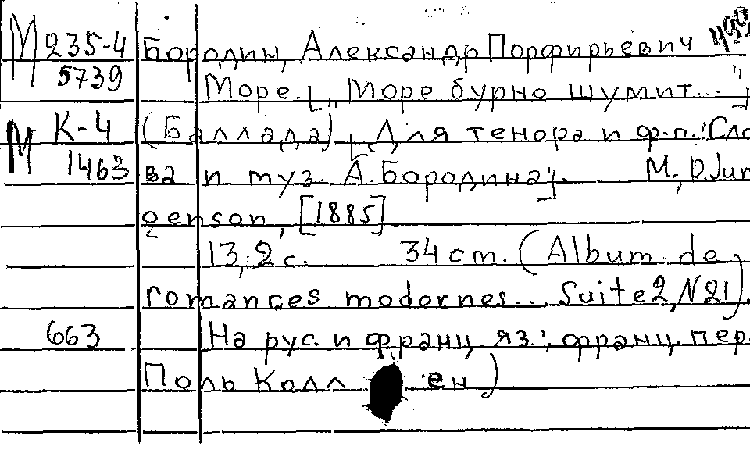 М 235-4 Бородин, Александр Порфирьевич
5739 Море. [„Море бурно шумит..."
М К-4 (Баллада), Для тенора и ф.-п. Сло
1463 ва и муз. А. Бородина]. М., P. Jur
genson, [1885]
13, 2 с. 34 cm. (Album de
romances modernes... Suite 2, № 21)
663 На рус. и франц. яз.; франц. пер.
Поль Колл ен)